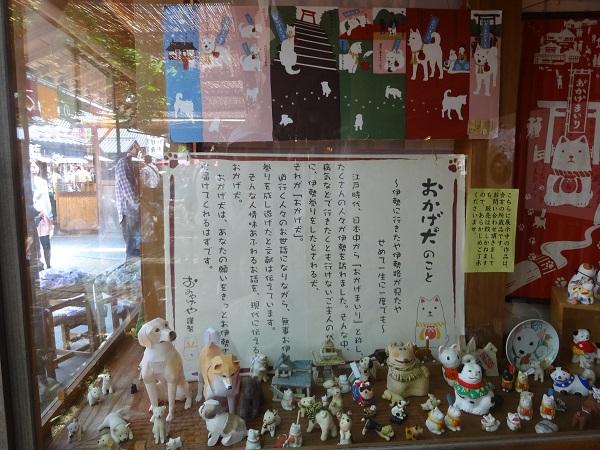 おかげ犬のこと
～伊勢に行きたや伊勢路が見たや
せめて一生に一度でも～
江戸時代、日本中から「おかげまいり」と称し、
たくさんの人々が伊勢を訪れました。そんな中、
病気などで行きたくとも行けないご主人の代
に、伊勢参りをしたとされる犬、
それが「おかげ犬」。
道行く人々のお世話になりながら、無事お伊
参りを成し遂げたと文献は伝えています。
そんな人情味あふれるお話を、現代に伝える
おかげ犬。
おかげ犬は、あなたの願いをきっとお伊勢
に届けてくれるはずです。
おみやげや 謹製
こちらに展示中の作品は、
おかげまいり